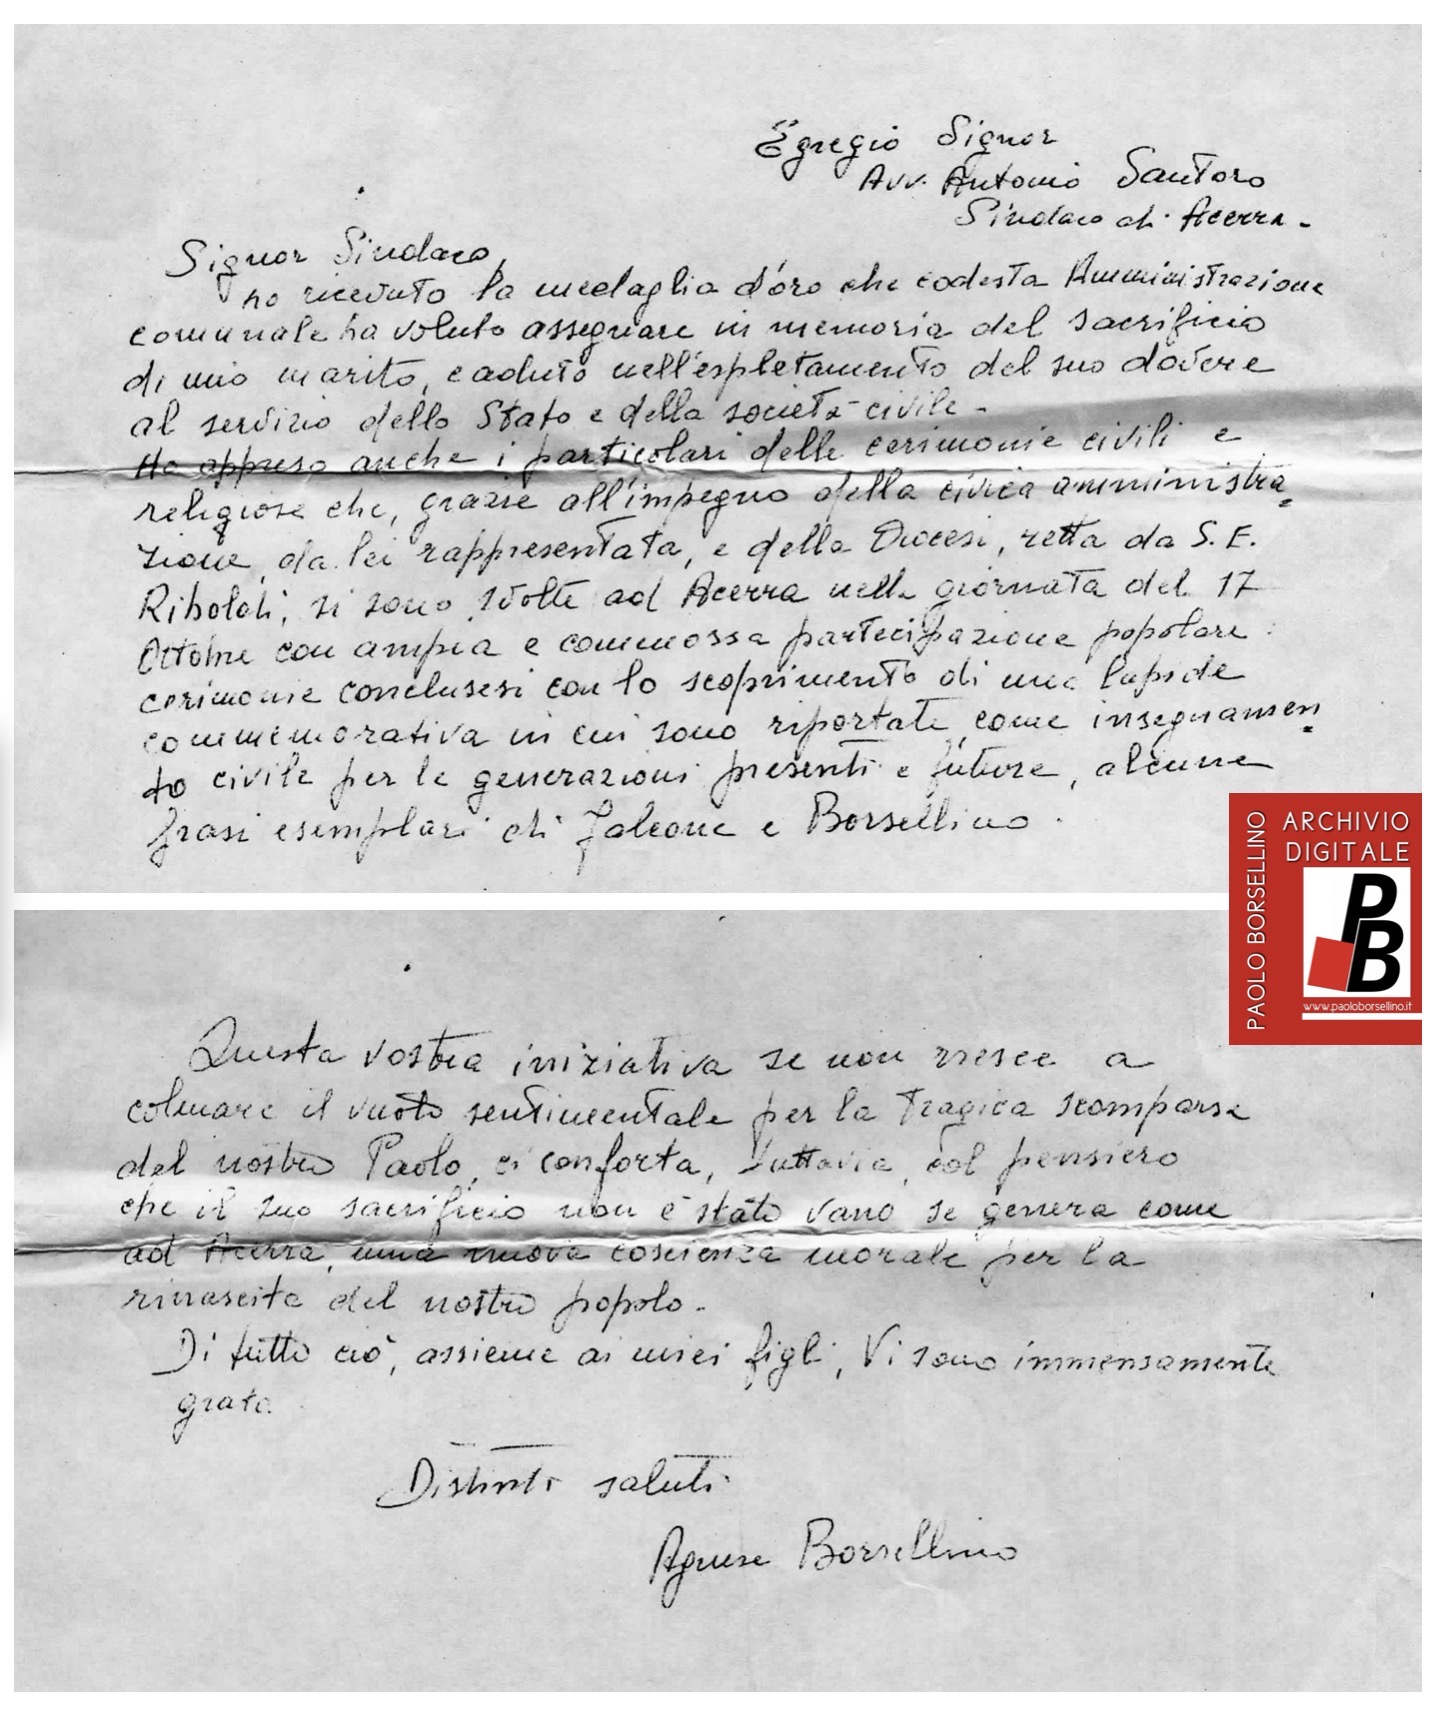 Egregio Signor
Avv. Antonio Santoro
Sindaco di Acerra -
Signor Sindaco,
ho ricevuto la medaglia d'oro che codesta Amministrazione
comunale ha voluto assegnare in memoria del sacrificio
di mio marito, caduto nell'espletamento del suo dovere
al servizio dello Stato e della società civile -
Ho appreso anche i particolari delle cerimonie civili e
religiose che, grazie all'impegno della civica amministra
zione, da lei rappresentata, e della Diocesi, retta da S. E.
Riboldi, si sono svolte ad Acerra nella giornata del 17
Ottobre con ampia e commossa partecipazione popolare:
cerimonie conclusesi con lo scoprimento di una lapide
commemorativa in cui sono riportate, come insegnamen
to civile per le generazioni presenti e future, alcune
frasi esemplari di Falcone e Borsellino.
PAOLO BORSELLINO
ARCHIVIO
DIGITALE
PB
www.paoloborsellino.it
Questa vostra iniziativa se non riesce a
colmare il vuoto sentimentale per la tragica scomparsa
del nostro Paolo, ci conforta, tuttavia, col pensiero
che il suo sacrificio non è stato vano se genera come
ad Acerra, una nuova coscienza morale per la
rinascita del nostro popolo -
Di tutto ciò, assieme ai miei figli, Vi sono immensamente
grata
Distinti saluti
Agnese Borsellino